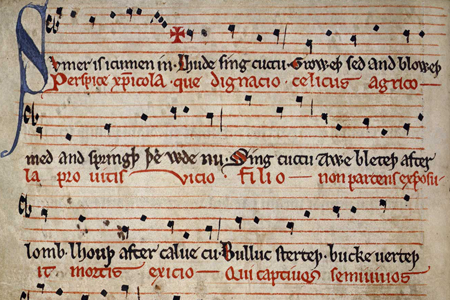 Sumer is icumen in· Lhude sing cuccu· Groweþ sed and bloweþ
Perspice xp̄icola· que dignacio celicus agrico—
med and springþ þe wde nu· Sing cuccu Awe bleteþ after
la pro uitis vicio filio — non parcens exposu-
lomb· lhouþ after calue cu· Bulluc sterteþ· bucke uerteþ
it mortis exicio — Qui captiuos semiuiuos